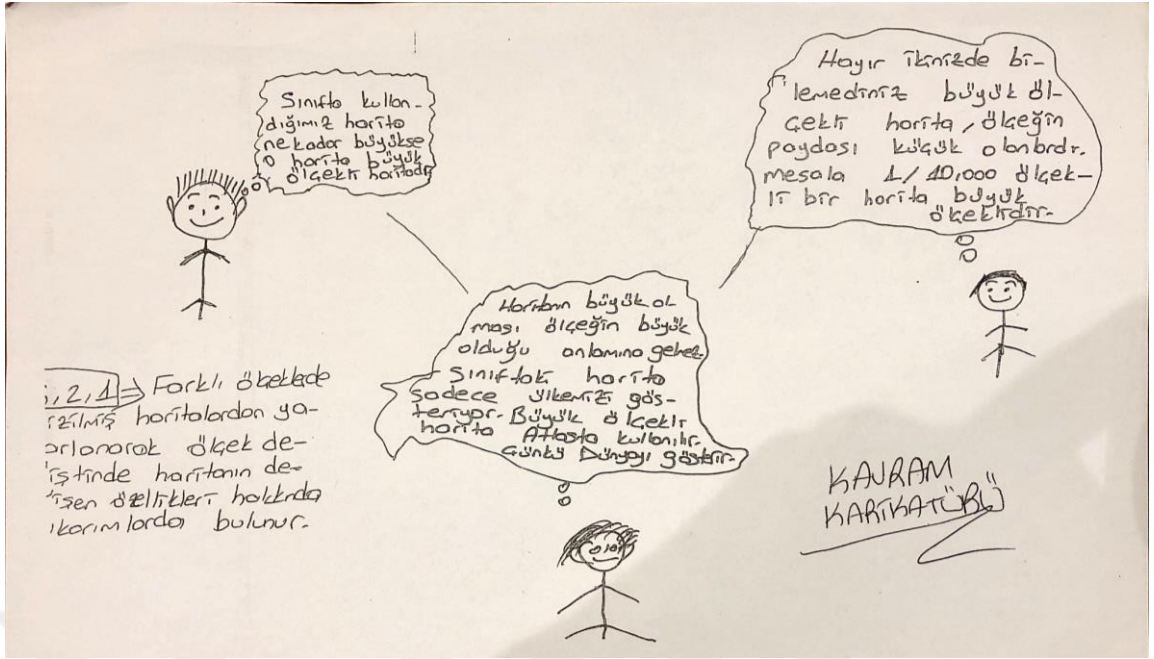 Sınıfta kullan-
dığımız harita
nekadar büyükse
o harita büyük
ölçekli haritadır
Hayır ikinizde bi-
lemediniz büyük öl-
çekli harita, ölçeğin
paydası küçük olanlardır.
mesala 1/10,000 ölçek-
li bir harita büyük
ölçeklidir.
Haritanın büyük ol
ması ölçeğin büyük
olduğu anlamına gelmez
Sınıftaki harita
sadece ülkemizi gös-
teriyor. Büyük ölçekli
harita Atlasta kullanılır.
Çünkü Dünyayı gösterir.
, 2, 1 ⇒ Farklı ölçeklede
izilmiş haritalardan ya-
arlanarak ölçek de-
iştinde haritanın de-
işen özellikleri hakkında
ıkarımlarda bulunur.
KAVRAM
KARİKATÜRÜ